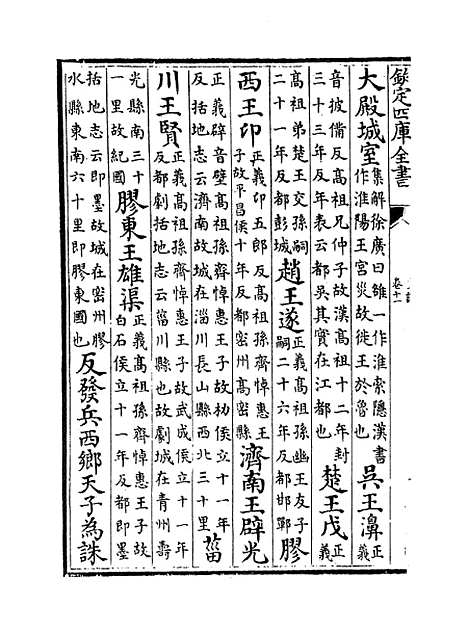 欽定四庫全書
卷十一
大殿城室集解徐廣曰雒一作淮索隱漢書作淮陽王宮災故徙王於魯也吳王濞正義
音披備反高祖兄仲子故漢高祖十二年封三十三年反年表云都吳其實在江都也楚王戊正義
高祖弟楚王交孫嗣二十一年反都彭城趙王遂正義高祖孫幽王友子嗣二十六年反都邯鄲膠
西王卬正義卬五郎反高祖孫齊悼惠王子故平昌侯十年反都密州高密縣濟南王辟光
正義辟音壁高祖孫齊悼惠王子故朸侯立十一年反括地志云濟南故城在淄川長山縣西北三十里菑
川王賢正義高祖孫齊悼惠王子故武成侯立十一年反都劇括地志云菑川縣也故劇城在青州壽
光縣南三十一里故紀國膠東王雄渠正義高祖孫齊悼惠王子故白石侯立十一年反都即墨
括地志云即墨故城在密州膠水縣東南六十里即膠東國也反發兵西鄉天子為誅